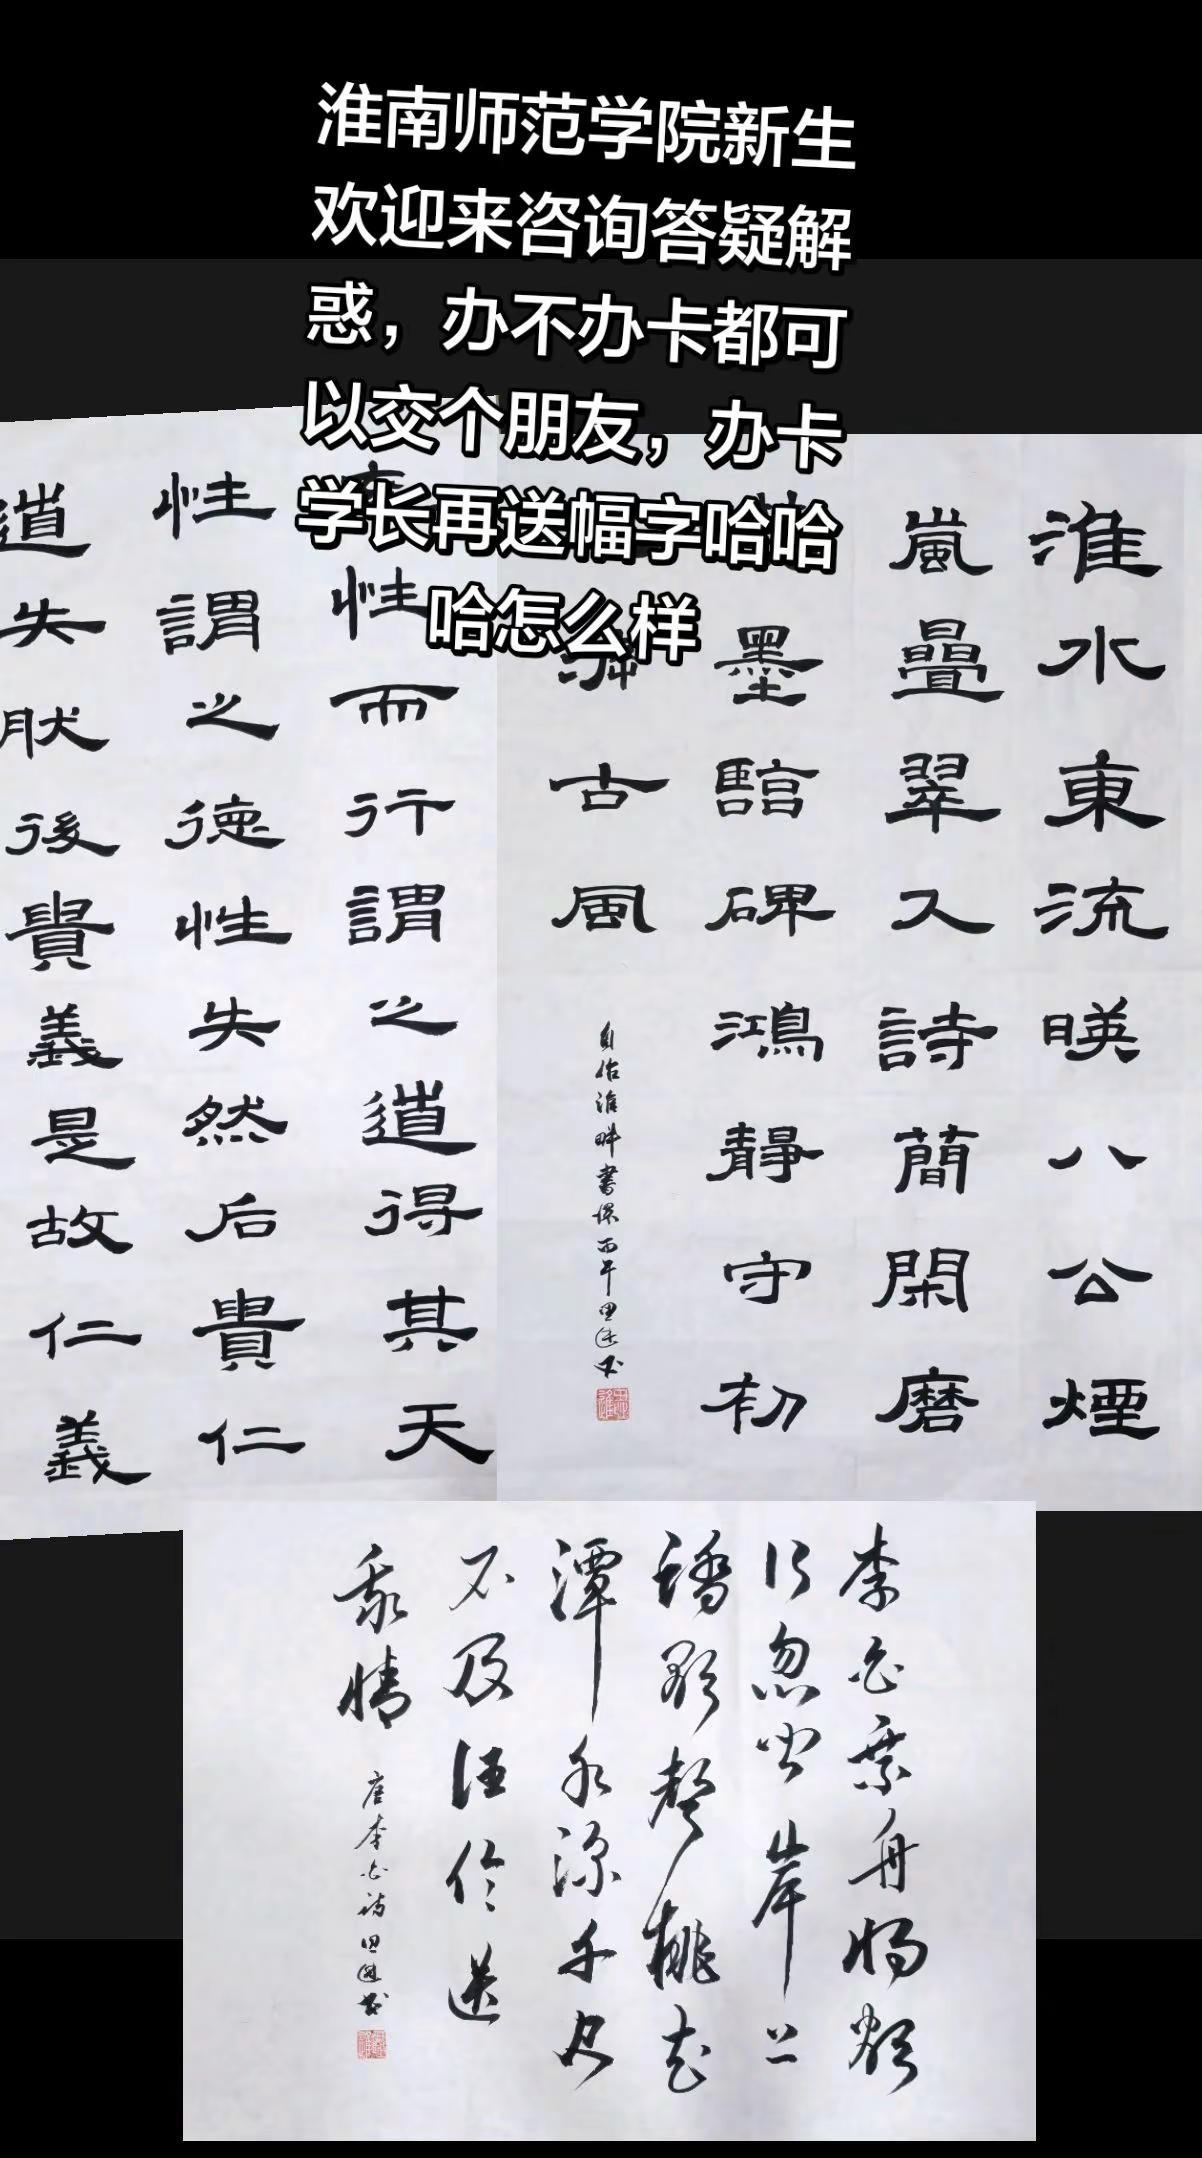 淮南师范学院新生
欢迎来咨询答疑解
惑，办不办卡都可
以交个朋友，办卡
学长再送幅字哈哈
哈怎么样
性而行謂之道得其天
性謂之德性失然后貴仁
道失肰後貴義是故仁義
淮水東流暎八公煙
嵐疊翠入詩簡閑磨
墨臨碑鴻靜守初
古風
自作淮畔書懷丙午田進书
李白乘舟将欲
行忽闻岸上
踏歌聲桃花
潭水深千尺
不及汪伦送
我情
唐李白诗田進书